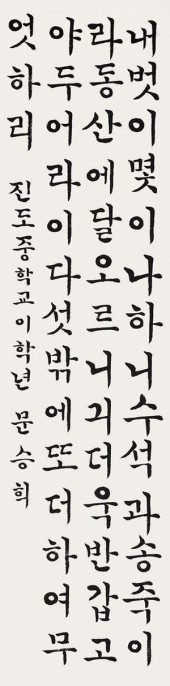 내벗이몇이나하니수석과송죽이
라동산에달오르니긔더욱반갑고
야두어라이다섯밖에또더하여무
엇하리
진도중학교이학년 문승희